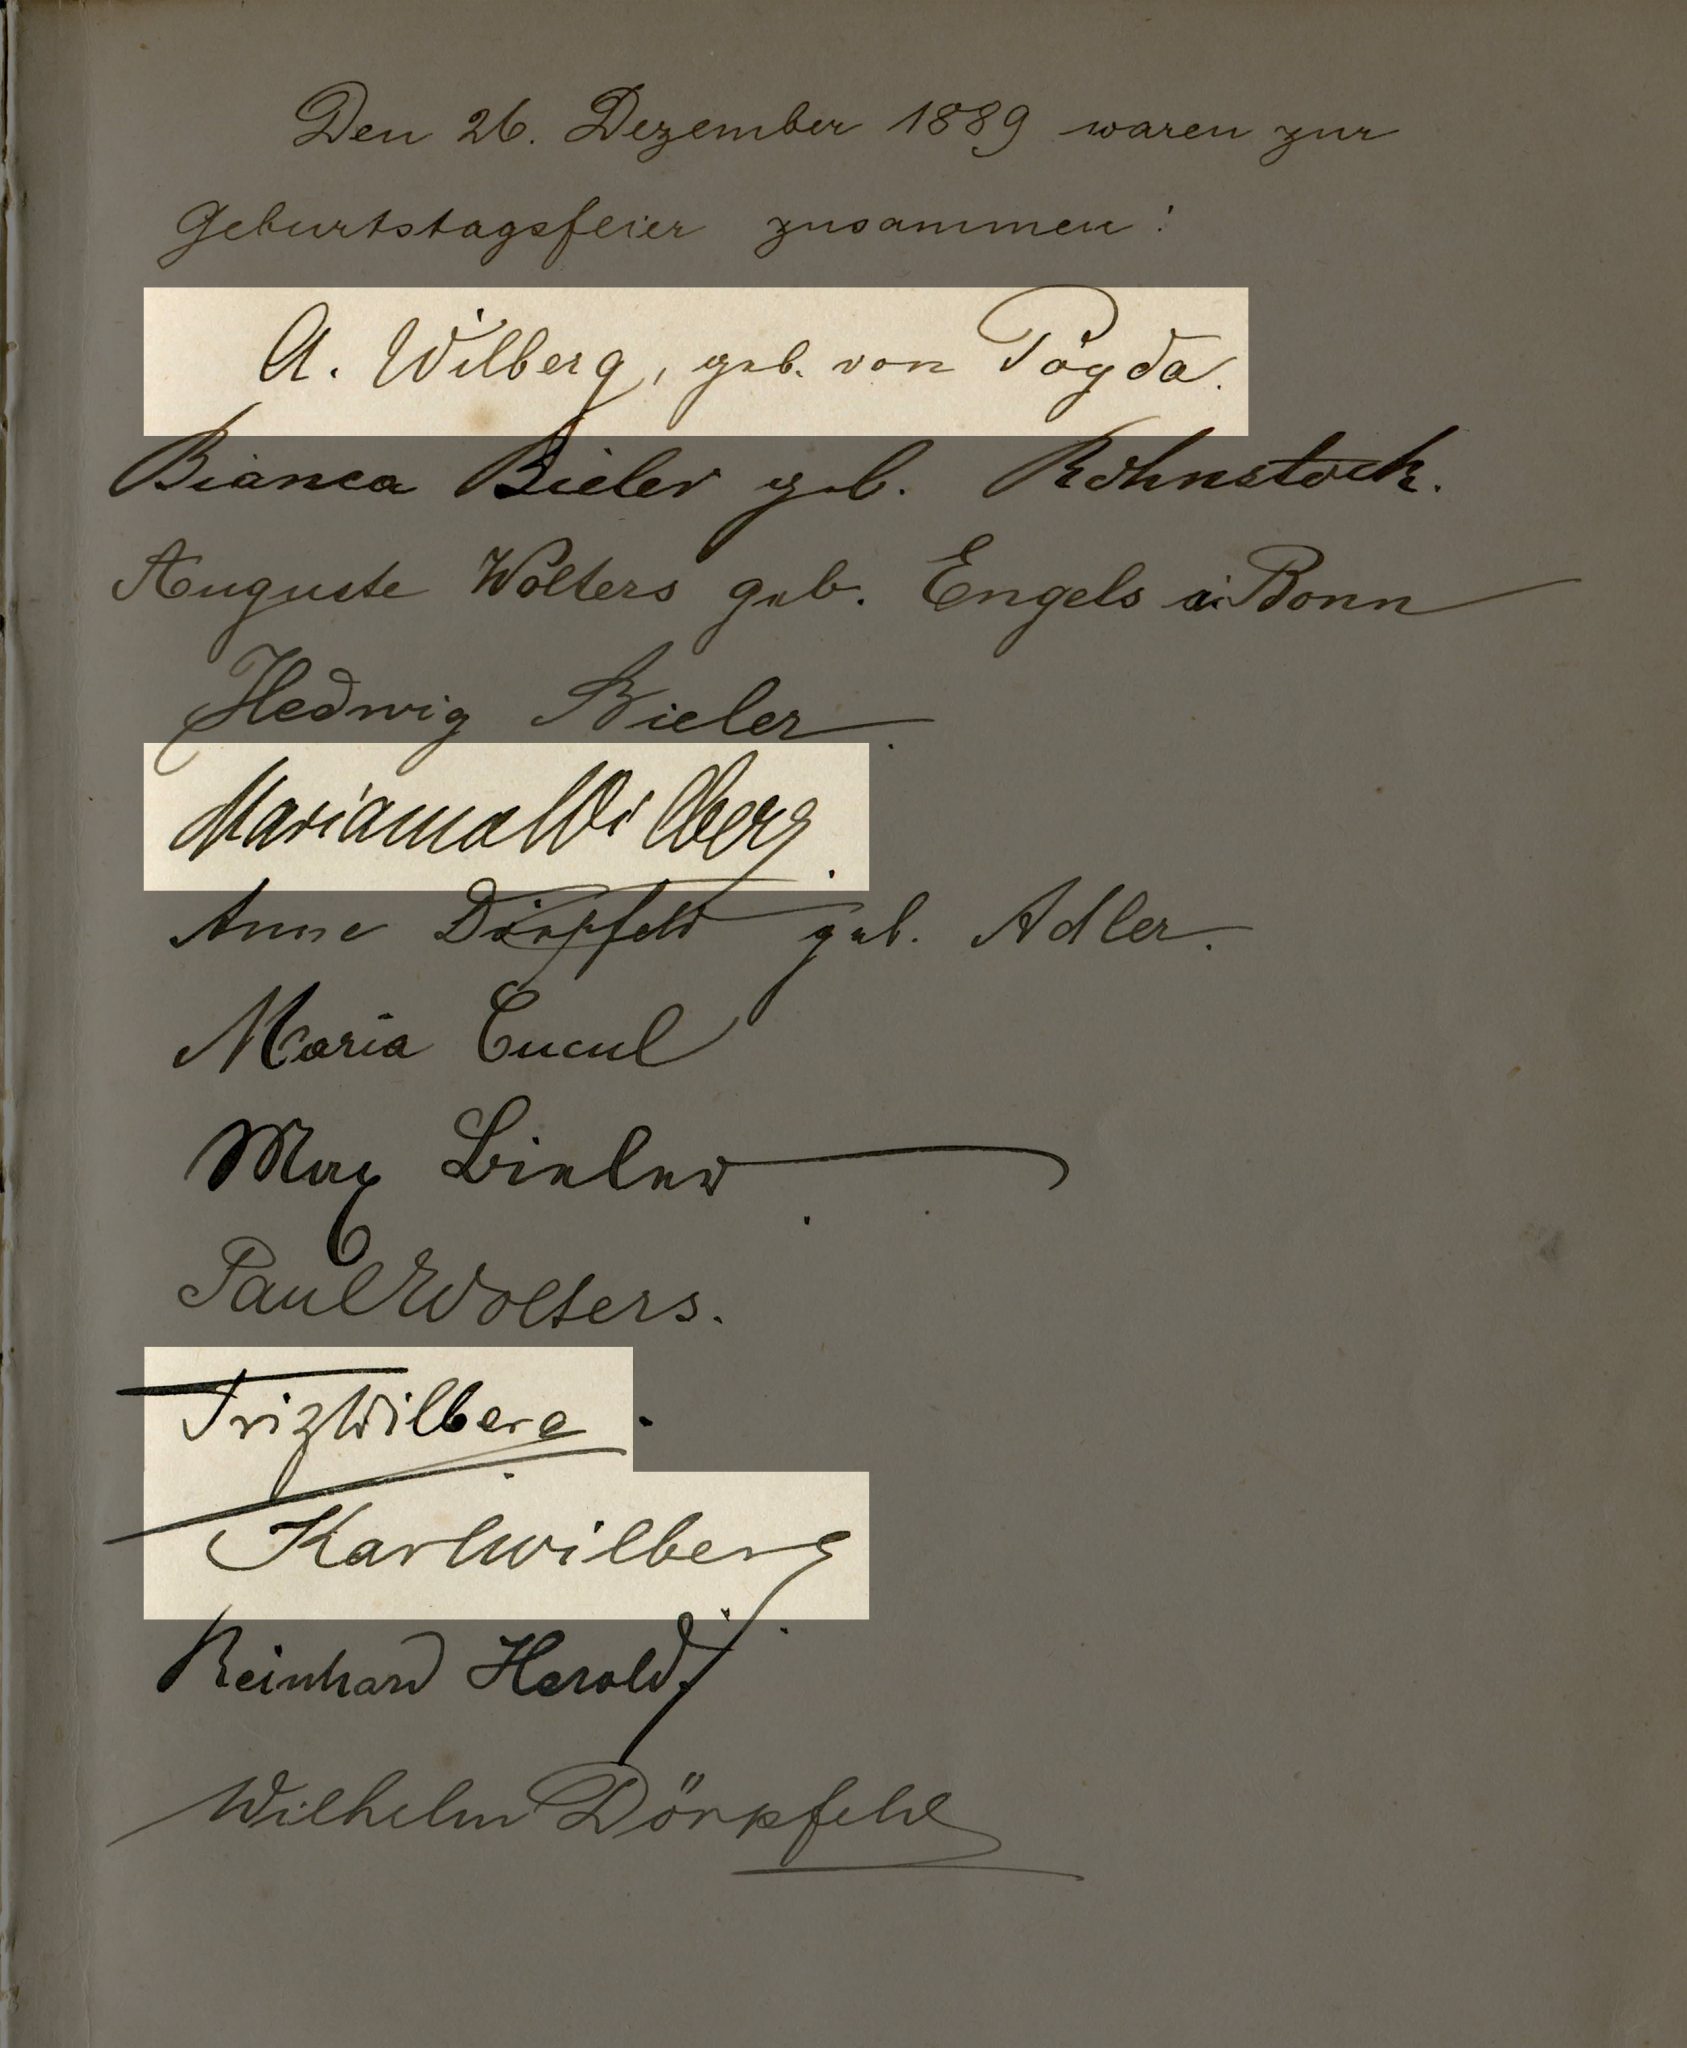 Den 26. Dezember 1889 waren zur
Geburtstagsfeier zusammen:
A. Wilberg, geb. von Pogda.
Bianca Bieler geb. Rohnstock.
Auguste Wolters geb. Engels a. Bonn
Hedwig Bieler.
Marianna Wilberg.
Anne Dörpfeld geb. Adler.
Maria Cucul
Max Bieler
Paul Wolters.
Friz Wilberg.
Karl Wilberg
Reinhard Herold.
Wilhelm Dörpfeld